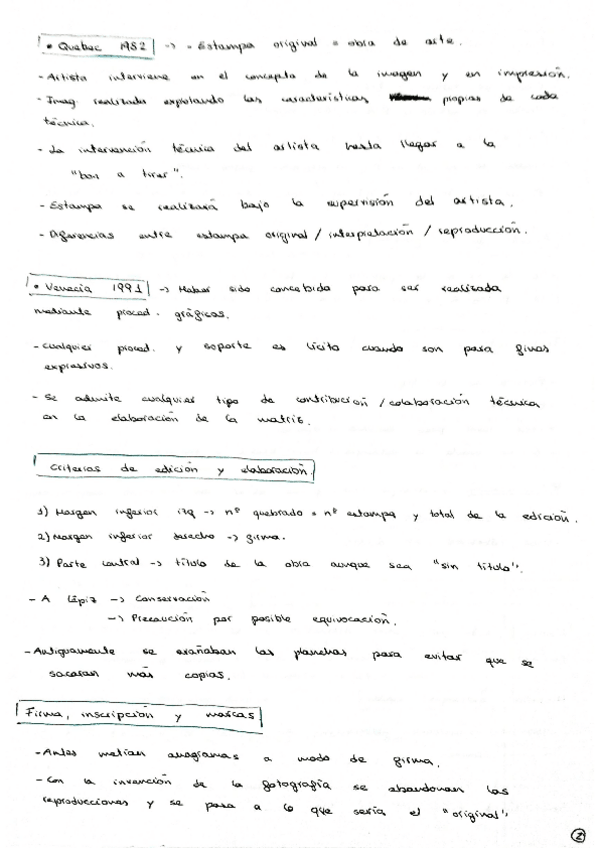 • Quebec 1982 -> = Estampa original = obra de arte.
- Artista interviene en el concepto de la imagen y en impresión.
- Imag. realizada explotando las características propias de cada
técnica.
- La intervención técnica del artista hasta llegar a la
"bon a tirer".
- Estampa se realizará bajo la supervisión del artista.
- Diferencias entre estampa original / interpretación / reproducción.
• Venecia 1991 -> Haber sido concebida para ser realizada
mediante proced. gráficos.
- Cualquier proced. y soporte es lícita cuando son para fines
expresivos.
- Se admite cualquier tipo de contribución / colaboración técnica
en la elaboración de la matriz.
Criterios de edición y elaboración.
1) Margen inferior izq -> nº quebrado = nº estampa y total de la edición.
2) Margen inferior derecho -> firma.
3) Parte central -> título de la obra aunque sea "sin título".
- A lápiz -> Conservación
-> Precaución por posible equivocación.
- Antiguamente se arañaban las planchas para evitar que se
sacaran más copias.
Firma, inscripción y marcas
- Antes metían anagramas a modo de firma.
- Con la invención de la fotografía se abandonan las
reproducciones y se pasa a lo que sería el "original".
2